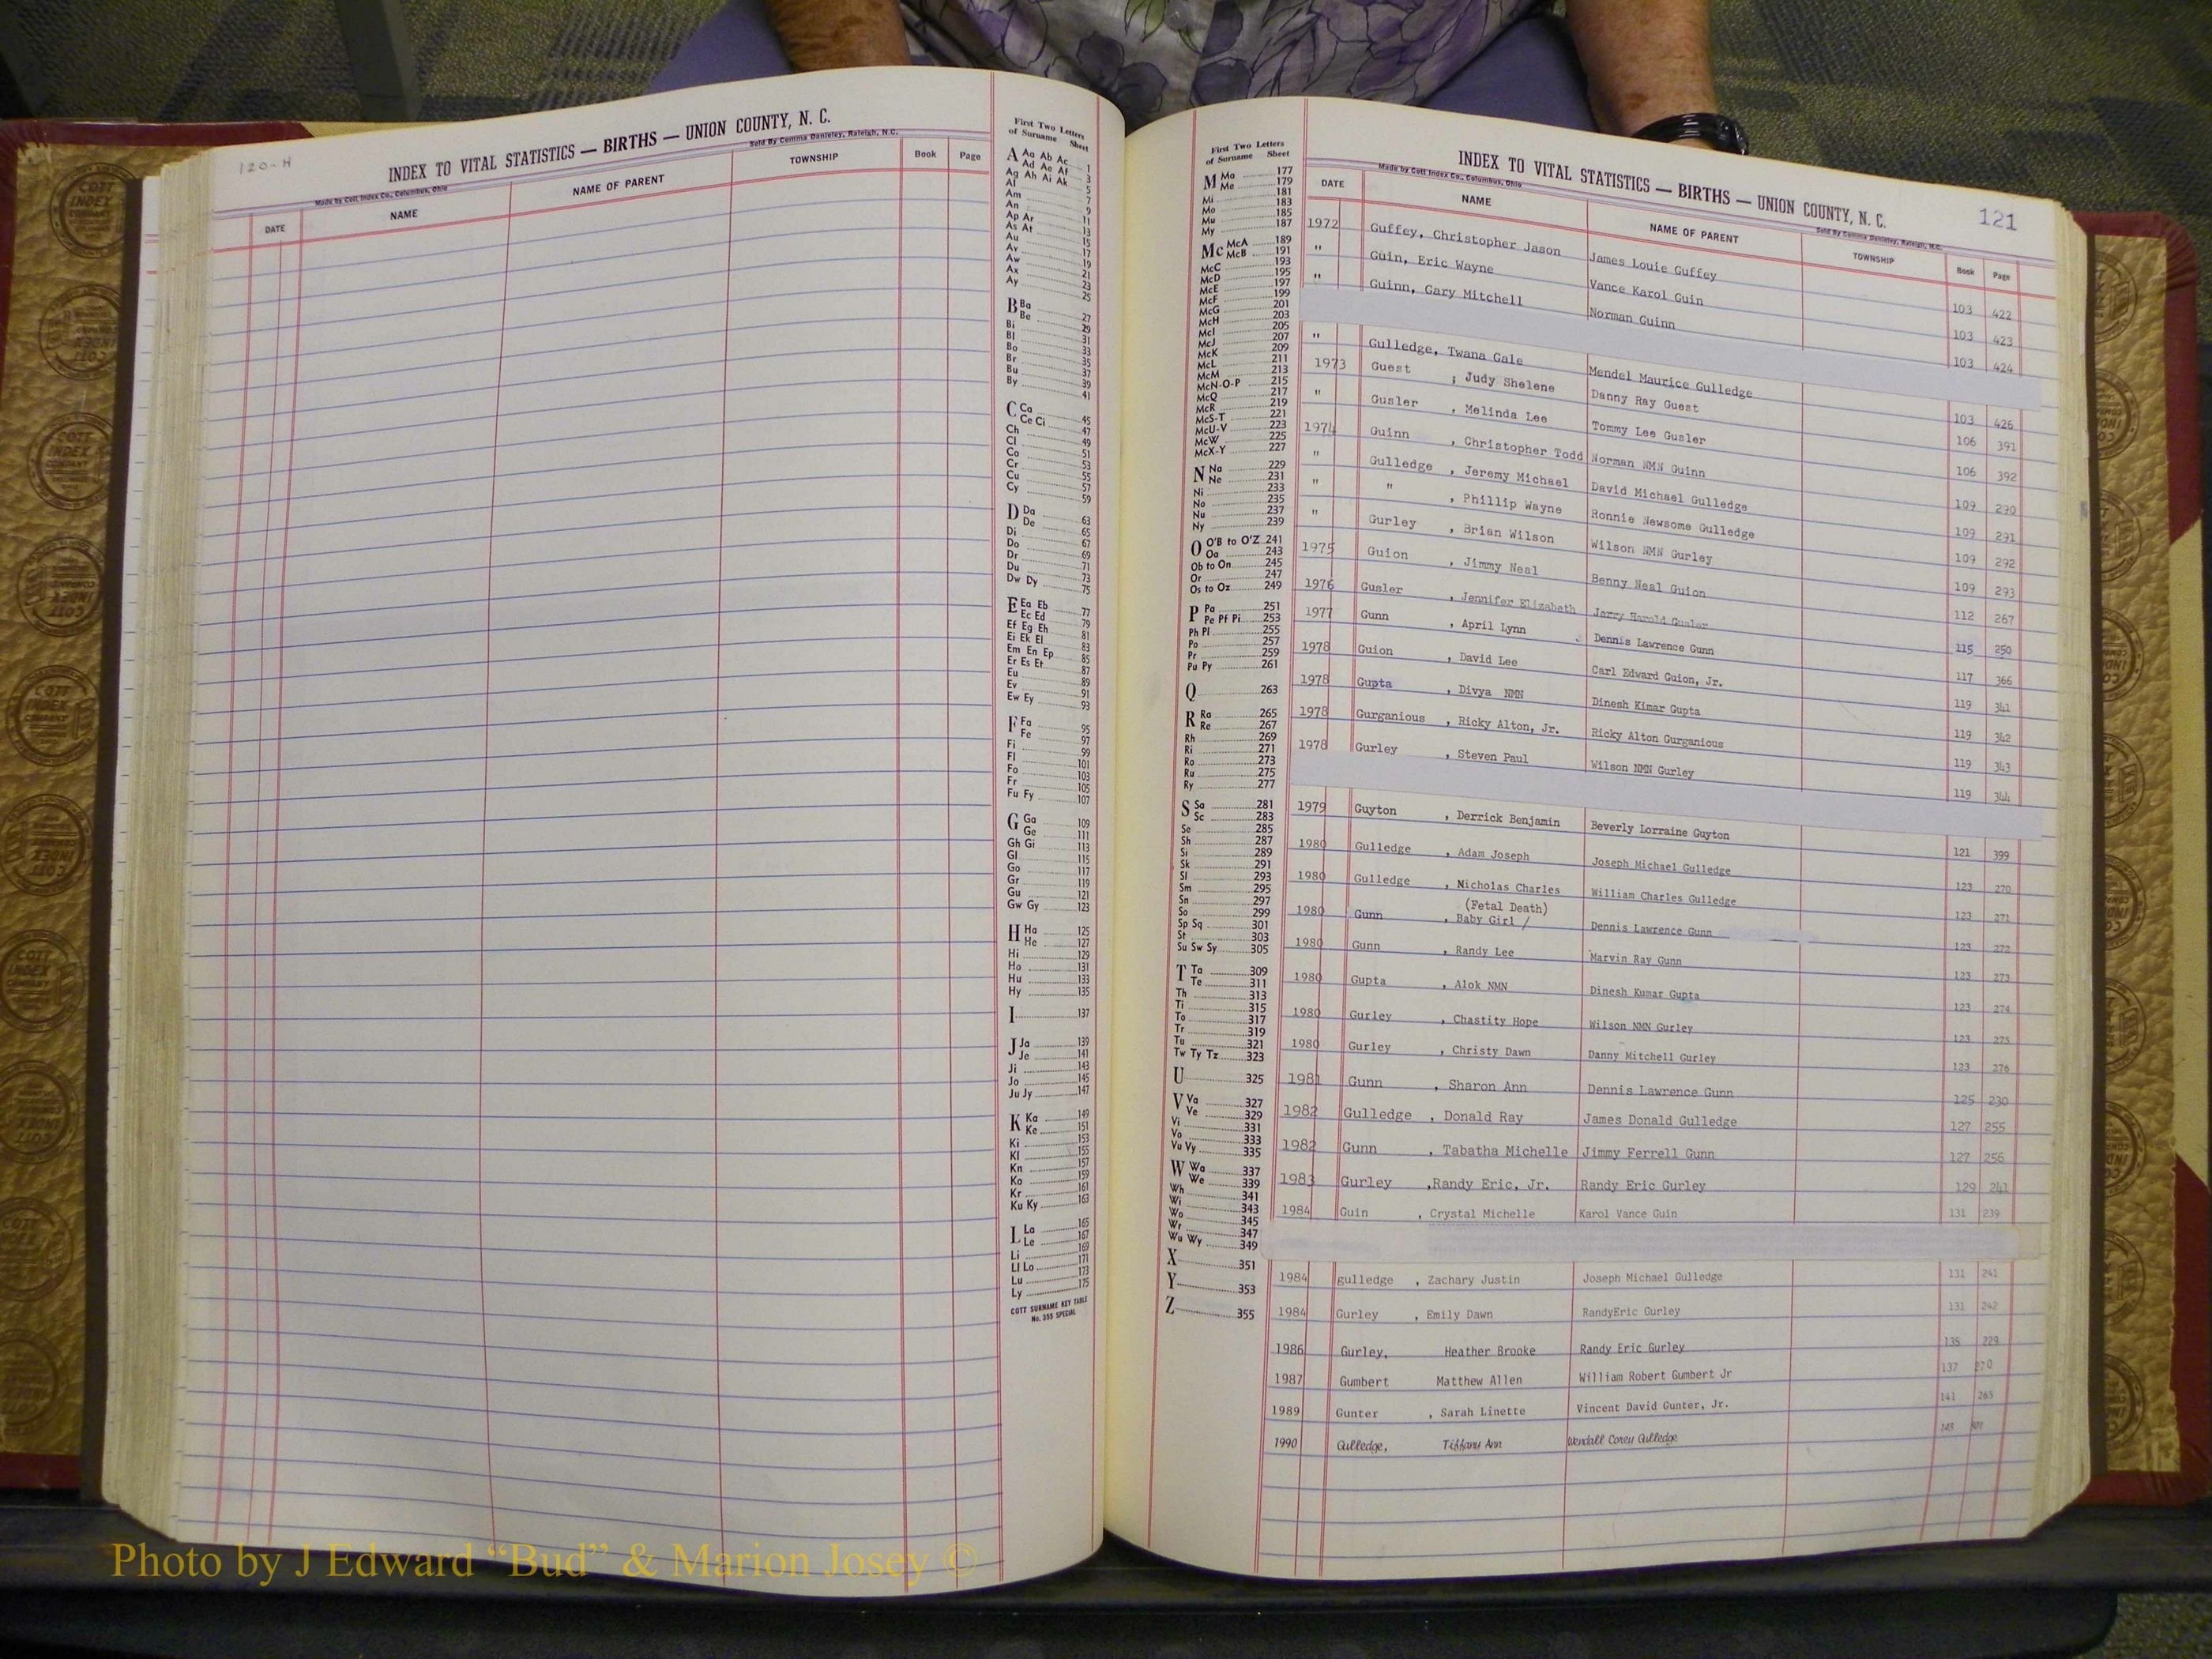 120-H
INDEX TO VITAL STATISTICS — BIRTHS — UNION COUNTY, N. C.
Made by Cott Index Co., Columbus, Ohio
Sold By Comma Danieley, Raleigh, N.C.
DATE NAME NAME OF PARENT TOWNSHIP Book Page
First Two Letters
of Surname Sheet
A Aa Ab Ac 1
Ad Ae Af 3
Ag Ah Ai Ak 5
Al 7
Am 9
An 11
Ap Ar 13
As At 15
Au 17
Av 19
Aw 21
Ax 23
Ay 25
B Ba 27
Be 29
Bi 31
Bl 33
Bo 35
Br 37
Bu 39
By 41
C Ca 45
Ce Ci 47
Ch 49
Cl 51
Co 53
Cr 55
Cu 57
Cy 59
D Da 63
De 65
Di 67
Do 69
Dr 71
Du 73
Dw Dy 75
E Ea Eb 77
Ec Ed 79
Ef Eg Eh 81
Ei Ek El 83
Em En Ep 85
Er Es Et 87
Eu 89
Ev 91
Ew Ey 93
F Fa 95
Fe 97
Fi 99
Fl 101
Fo 103
Fr 105
Fu Fy 107
G Ga 109
Ge 111
Gh Gi 113
Gl 115
Go 117
Gr 119
Gu 121
Gw Gy 123
H Ha 125
He 127
Hi 129
Ho 131
Hu 133
Hy 135
I 137
J Ja 139
Je 141
Ji 143
Jo 145
Ju Jy 147
K Ka 149
Ke 151
Ki 153
Kl 155
Kn 157
Ko 159
Kr 161
Ku Ky 163
L La 165
Le 167
Li 169
Ll Lo 171
Lu 173
Ly 175
COTT SURNAME KEY TABLE
No. 355 SPECIAL
First Two Letters
of Surname Sheet
M Ma 177
Me 179
Mi 181
Mo 183
Mu 185
My 187
Mc McA 189
McB 191
McC 193
McD 195
McE 197
McF 199
McG 201
McH 203
McI 205
McJ 207
McK 209
McL 211
McM 213
McN-O-P 215
McQ 217
McR 219
McS-T 221
McU-V 223
McW 225
McX-Y 227
N Na 229
Ne 231
Ni 233
No 235
Nu 237
Ny 239
O O'B to O'Z 241
Oa 243
Ob to On 245
Or 247
Os to Oz 249
P Pa 251
Pe Pf Pi 253
Ph Pl 255
Po 257
Pr 259
Pu Py 261
Q 263
R Ra 265
Re 267
Rh 269
Ri 271
Ro 273
Ru 275
Ry 277
S Sa 281
Sc 283
Se 285
Sh 287
Si 289
Sk 291
Sl 293
Sm 295
Sn 297
So 299
Sp Sq 301
St 303
Su Sw Sy 305
T Ta 309
Te 311
Th 313
Ti 315
To 317
Tr 319
Tu 321
Tw Ty Tz 323
U 325
V Va 327
Ve 329
Vi 331
Vo 333
Vu Vy 335
W Wa 337
We 339
Wh 341
Wi 343
Wo 345
Wr 347
Wu Wy 349
X 351
Y 353
Z 355
INDEX TO VITAL STATISTICS — BIRTHS — UNION COUNTY, N. C.
121
Made by Cott Index Co., Columbus, Ohio
Sold By Comma Danieley, Raleigh, N.C.
DATE NAME NAME OF PARENT TOWNSHIP Book Page
1972 Guffey, Christopher Jason James Louie Guffey 103 422
" Guin, Eric Wayne Vance Karol Guin 103 423
" Guinn, Gary Mitchell Norman Guinn 103 424
" Gulledge, Twana Gale Mendel Maurice Gulledge 103 426
1973 Guest ; Judy Shelene Danny Ray Guest 106 391
" Gusler , Melinda Lee Tommy Lee Gusler 106 392
1974 Guinn , Christopher Todd Norman NMN Guinn 109 290
" Gulledge , Jeremy Michael David Michael Gulledge 109 291
" " , Phillip Wayne Ronnie Newsome Gulledge 109 292
" Gurley , Brian Wilson Wilson NMN Gurley 109 293
1975 Guion , Jimmy Neal Benny Neal Guion 112 267
1976 Gusler , Jennifer Elizabeth Jerry Harold Gusler 115 250
1977 Gunn , April Lynn Dennis Lawrence Gunn 117 366
1978 Guion , David Lee Carl Edward Guion, Jr. 119 341
1978 Gupta , Divya NMN Dinesh Kimar Gupta 119 342
1978 Gurganious , Ricky Alton, Jr. Ricky Alton Gurganious 119 343
1978 Gurley , Steven Paul Wilson NMN Gurley 119 344
1979 Guyton , Derrick Benjamin Beverly Lorraine Guyton 121 399
1980 Gulledge , Adam Joseph Joseph Michael Gulledge 123 270
1980 Gulledge , Nicholas Charles William Charles Gulledge 123 271
(Fetal Death)
1980 Gunn , Baby Girl / Dennis Lawrence Gunn 123 272
1980 Gunn , Randy Lee Marvin Ray Gunn 123 273
1980 Gupta , Alok NMN Dinesh Kumar Gupta 123 274
1980 Gurley , Chastity Hope Wilson NMN Gurley 123 275
1980 Gurley , Christy Dawn Danny Mitchell Gurley 123 276
1981 Gunn , Sharon Ann Dennis Lawrence Gunn 125 230
1982 Gulledge , Donald Ray James Donald Gulledge 127 255
1982 Gunn , Tabatha Michelle Jimmy Ferrell Gunn 127 256
1983 Gurley ,Randy Eric, Jr. Randy Eric Gurley 129 241
1984 Guin , Crystal Michelle Karol Vance Guin 131 239
1984 gulledge , Zachary Justin Joseph Michael Gulledge 131 241
1984 Gurley , Emily Dawn RandyEric Gurley 131 242
1986 Gurley, Heather Brooke Randy Eric Gurley 135 229
1987 Gumbert Matthew Allen William Robert Gumbert Jr 137 270
1989 Gunter , Sarah Linette Vincent David Gunter, Jr. 141 265
1990 Gulledge, Tiffany Ann Wendall Corey Gulledge
Photo by J Edward “Bud” & Marion Josey ©